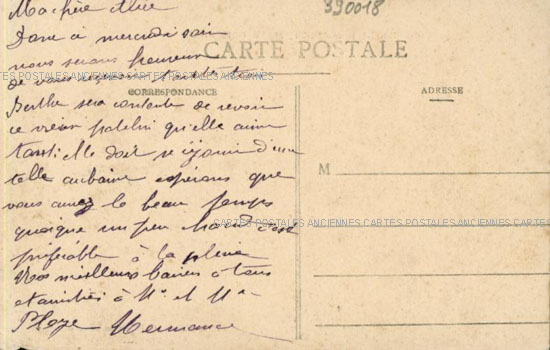 Ma chère Alice
390018
Donc à mercredi soir
nous serons heureux
CARTE POSTALE
de vous
CARTES POSTALES ANCIENNES CARTES POSTALES ANCIENNES CARTES POSTALES ANCIENNES
CORRESPONDANCE
ADRESSE
Berthe sera contente de revoir
ce vieux patelin qu'elle aime
tant. Elle doit se réjouir d'une
telle aubaine esperons que
M
vous aurez le beau temps
quoique un peu chaud c'est
CARTES POSTALES ANCIENNES CARTES POSTALES ANCIENNES CARTES
préférable à la pluie
Nos meilleurs baisers à tous
et amitiés à Mr et Mme
Ploye Hermance